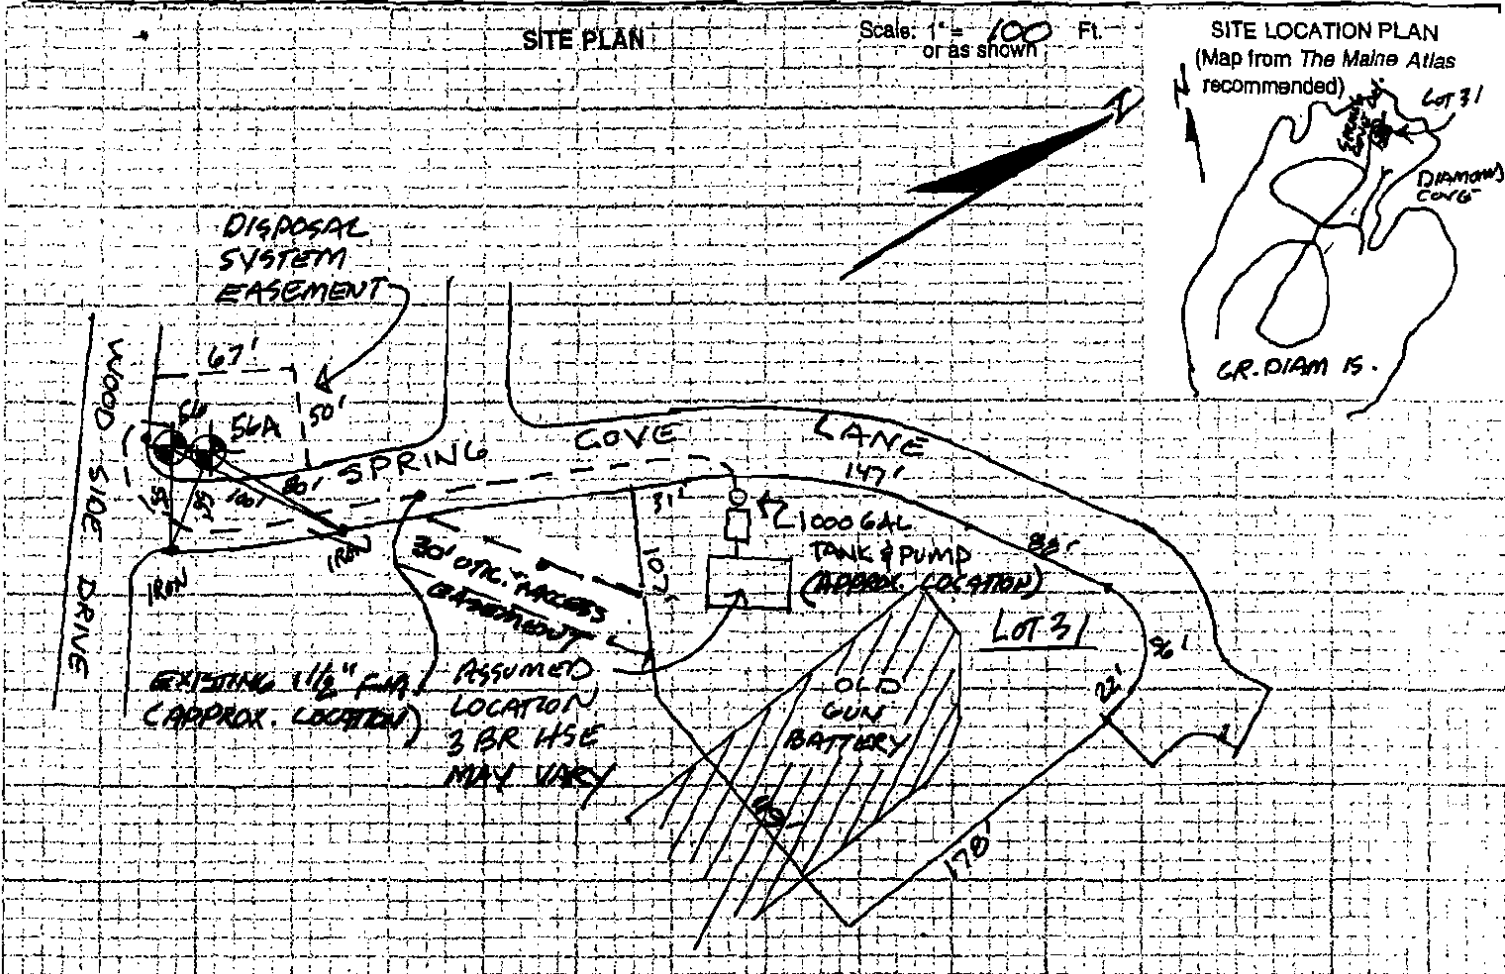 SITE PLAN
Scale: 1" = 100 Ft.
or as shown
SITE LOCATION PLAN
(Map from The Maine Atlas
recommended)
N
LOT 31
DIAMOND
COVE
GR. DIAM IS.
DISPOSAL
SYSTEM
EASEMENT
67'
50'
56A
WOOD SIDE DRIVE
SPRING COVE LANE
100'
80'
IRON
IRON
147'
31'
107'
1000 GAL
TANK & PUMP
(APPROX. LOCATION)
30' UTIL. ACCESS
EASEMENT
LOT 31
96'
22'
EXISTING 1 1/2" F.M.
(APPROX. LOCATION)
ASSUMED
LOCATION
3 BR HSE
MAY VARY
OLD
GUN
BATTERY
178'